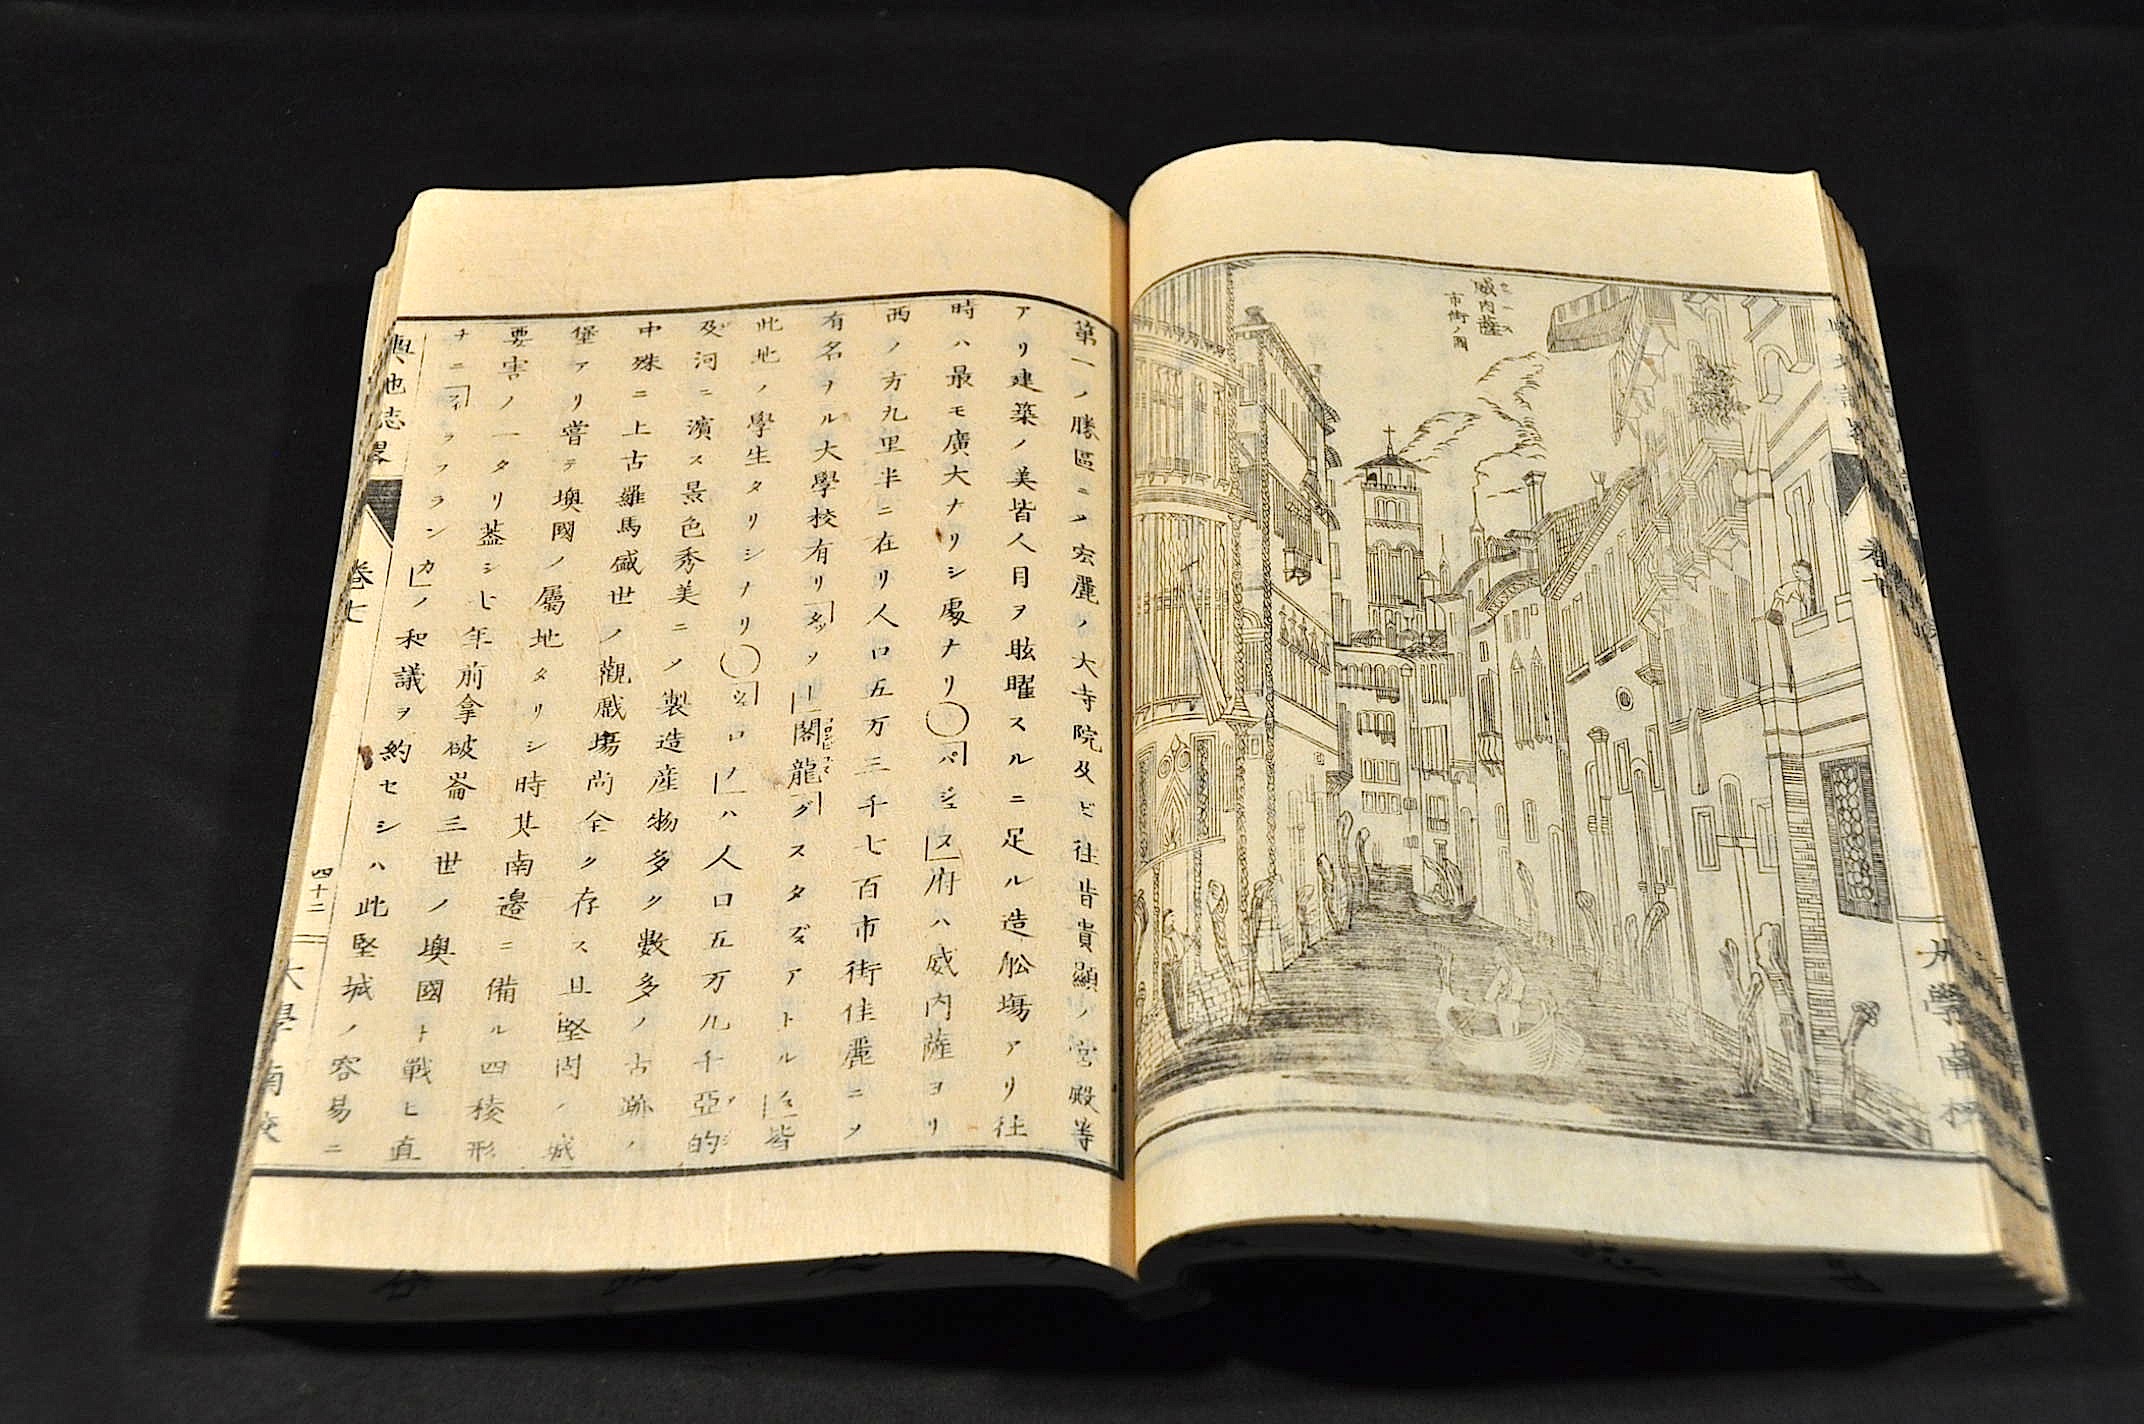 威内薩
市街ノ圖
卷七
大學南校
第一ノ勝區ニ〆宏麗ノ大寺院及ビ往昔貴顯ノ宮殿等
アリ建築ノ美皆人目ヲ眩曜スルニ足ル造舩塲アリ往
時ハ最モ廣大ナリシ處ナリ○パジュヌ府ハ威内薩ヨリ
西ノ方九里半ニ在リ人口五万三千七百市街佳麗ニ〆
有名ヲル大學校有リタッソー閣龍グスタヴアドル
此地ノ學生タリシナリ○ヴェロノハ人口五万九千亞的
及河ニ濱ス景色秀美ニ〆製造産物多ク數多ノ古跡ノ
中殊ニ上古羅馬盛世ノ觀戲塲尚全ク存ス且堅固ノ城
堡アリ嘗テ墺國ノ屬地タリシ時其南邉ニ備ル四稜形
要害ノ一タリ葢シ七年前拿破崙三世ノ墺國ト戰ヒ直
チニヴィラフランカノ和議ヲ約セシハ此堅城ノ容易ニ
輿地誌畧
卷七
四十二
大學南校